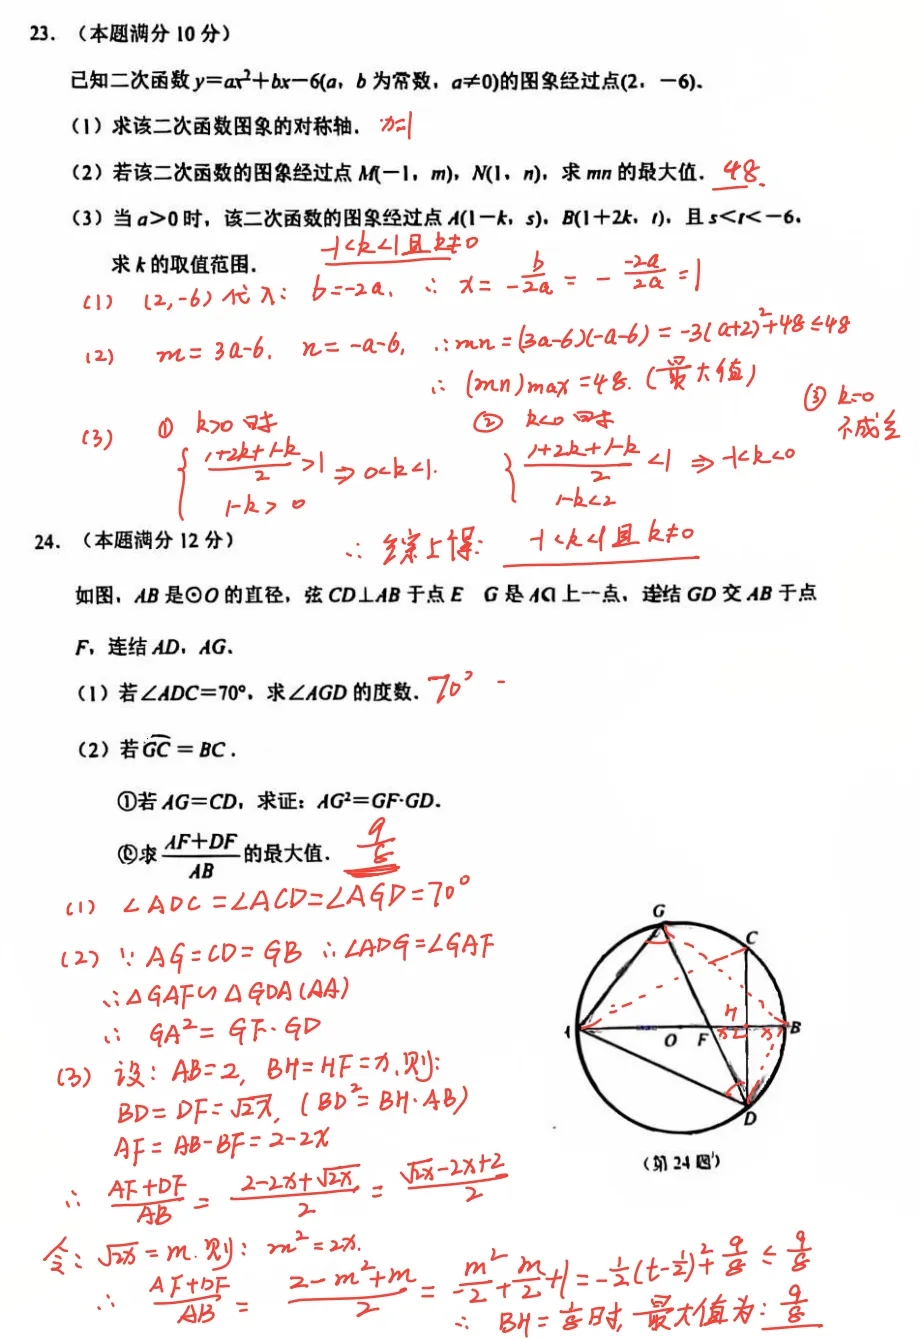 23. （本题满分 10 分）
已知二次函数 y=ax²+bx−6(a，b 为常数，a≠0)的图象经过点(2，−6).
（1）求该二次函数图象的对称轴. x=1
（2）若该二次函数的图象经过点 M(−1，m)，N(1，n)，求 mn 的最大值. 48.
（3）当 a>0 时，该二次函数的图象经过点 A(1−k，s)，B(1+2k，t)，且 s<t<−6，
求 k 的取值范围. -1<k<1且k≠0
(1) (2,-6)代入: b=-2a, ∴ x= b/-2a = - -2a/2a =1
(2) m=3a-6, n=-a-6, ∴mn=(3a-6)(-a-6)=-3(a+2)²+48≤48
∴ (mn)max=48. (最大值)
(3) ① k>0时 ② k<0时 ③ k=0 不成立
{ (1+2k+1-k)/2 >1 ⇒ 0<k<1. { (1+2k+1-k)/2 <1 ⇒ -1<k<0
1-k>0 1-k<2
∴ 综上得: -1<k<1且k≠0
24. （本题满分 12 分）
如图，AB 是⊙O 的直径，弦 CD⊥AB 于点 E G 是 AC 上一点，连结 GD 交 AB 于点
F，连结 AD，AG.
（1）若∠ADC=70°，求∠AGD 的度数. 70°
（2）若 GC = BC .
①若 AG=CD，求证：AG²=GF·GD.
②求 (AF+DF)/AB 的最大值. 9/8
(1) ∠ADC=∠ACD=∠AGD=70°
(2) ∵ AG=CD=GB ∴∠ADG=∠GAF
∴△GAF∽△GDA(AA)
∴ GA²=GF·GD
(3) 设: AB=2, BH=HF=x.则:
BD=DF=√2x, (BD²=BH·AB)
AF=AB-BF=2-2x
∴ (AF+DF)/AB = (2-2x+√2x)/2 = (√2x-2x+2)/2
令: √2x=m.则: m²=2x.
∴ (AF+DF)/AB = (2-m²+m)/2 = -m²/2+m/2+1=-1/2(t-1/2)²+9/8≤9/8
∴ BH=1/8时, 最大值为: 9/8
G
C
H
A
O
F
x
x
B
D
（第 24 题）